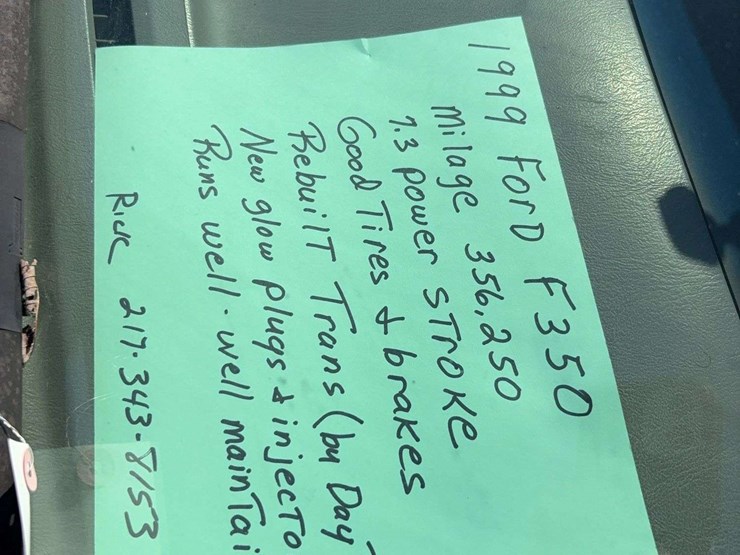 1999 Ford F350
milage 356,250
7.3 power STROKE
Good Tires & brakes
Rebuilt Trans (by Day
New glow plugs & injecto
Runs well - well maintai
Rick 217-343-8153